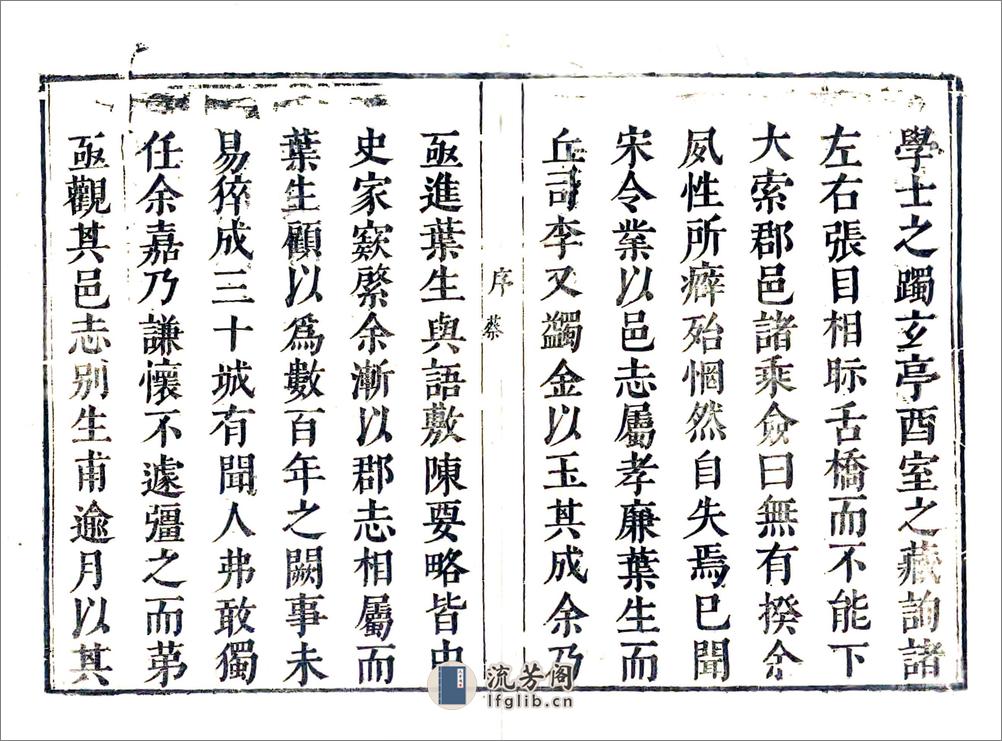 學士之躅玄亭酉室之藏詢諸
左右張目相眎舌橋而不能下
大索郡邑諸乘僉曰無有揆余
夙性所癖殆惘然自失焉已聞
宋令業以邑志屬孝廉葉生而
丘司李又蠲金以玉其成余乃
序 蔡
亟進葉生與語敷陳要略皆中
史家窾綮余漸以郡志相屬而
葉生顧以為數百年之闕事未
易猝成三十城有聞人弗敢獨
任余嘉乃謙懷不遽彊之而第
亟觀其邑志别生甫逾月以其
流芳阁
lfglib.cn